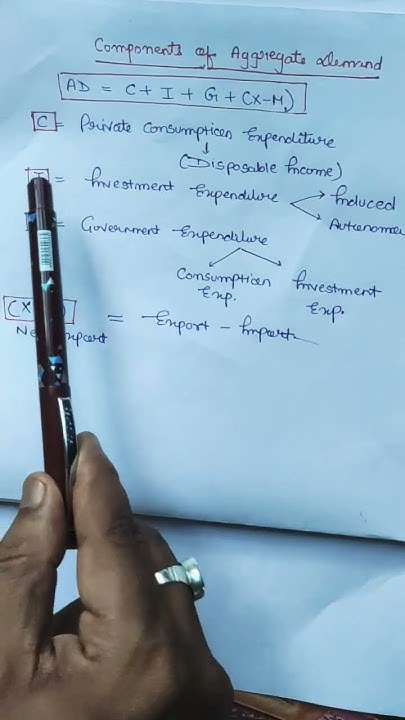 Components of Aggregate Demand
AD = C + I + G + (X-M)
C = Private Consumption Expenditure
(Disposable Income)
I = Investment Expenditure Induced
Autonomou
= Government Expenditure
Consumption Exp.
Investment Exp.
(X = Export - Import